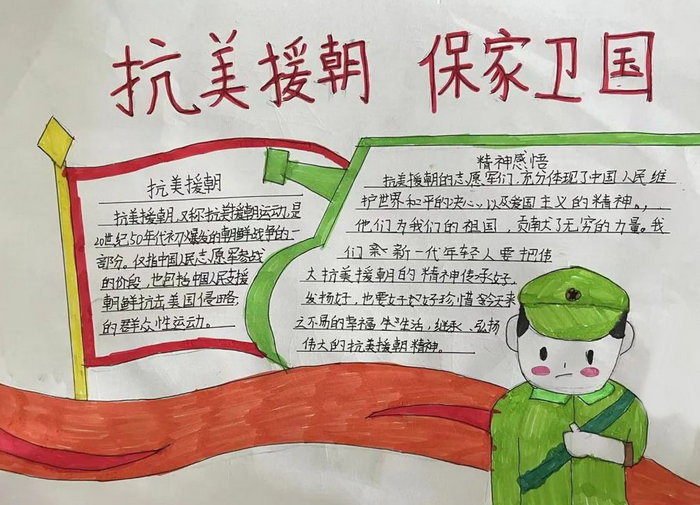 抗美援朝 保家卫国
抗美援朝
抗美援朝,又称抗美援朝运动,是
20世纪50年代初爆发的朝鲜战争的一
部分。仅指中国人民志愿军参战
的阶段,也包括中国人民支援
朝鲜抗击美国侵略
的群众性运动。
精神感悟
抗美援朝的志愿军们,充分体现了中国人民维
护世界和平的决心,以及爱国主义的精神。,
他们为我们的祖国,贡献了无穷的力量。我
们新一代年轻人要把伟
大抗美援朝的精神传承好,
发扬好,也要好好珍惜今天来
之不易的幸福生活,继承、弘扬
伟大的抗美援朝精神。